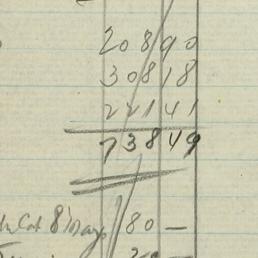 208 90
308 18
221 41
738 49
8 Days 80 —